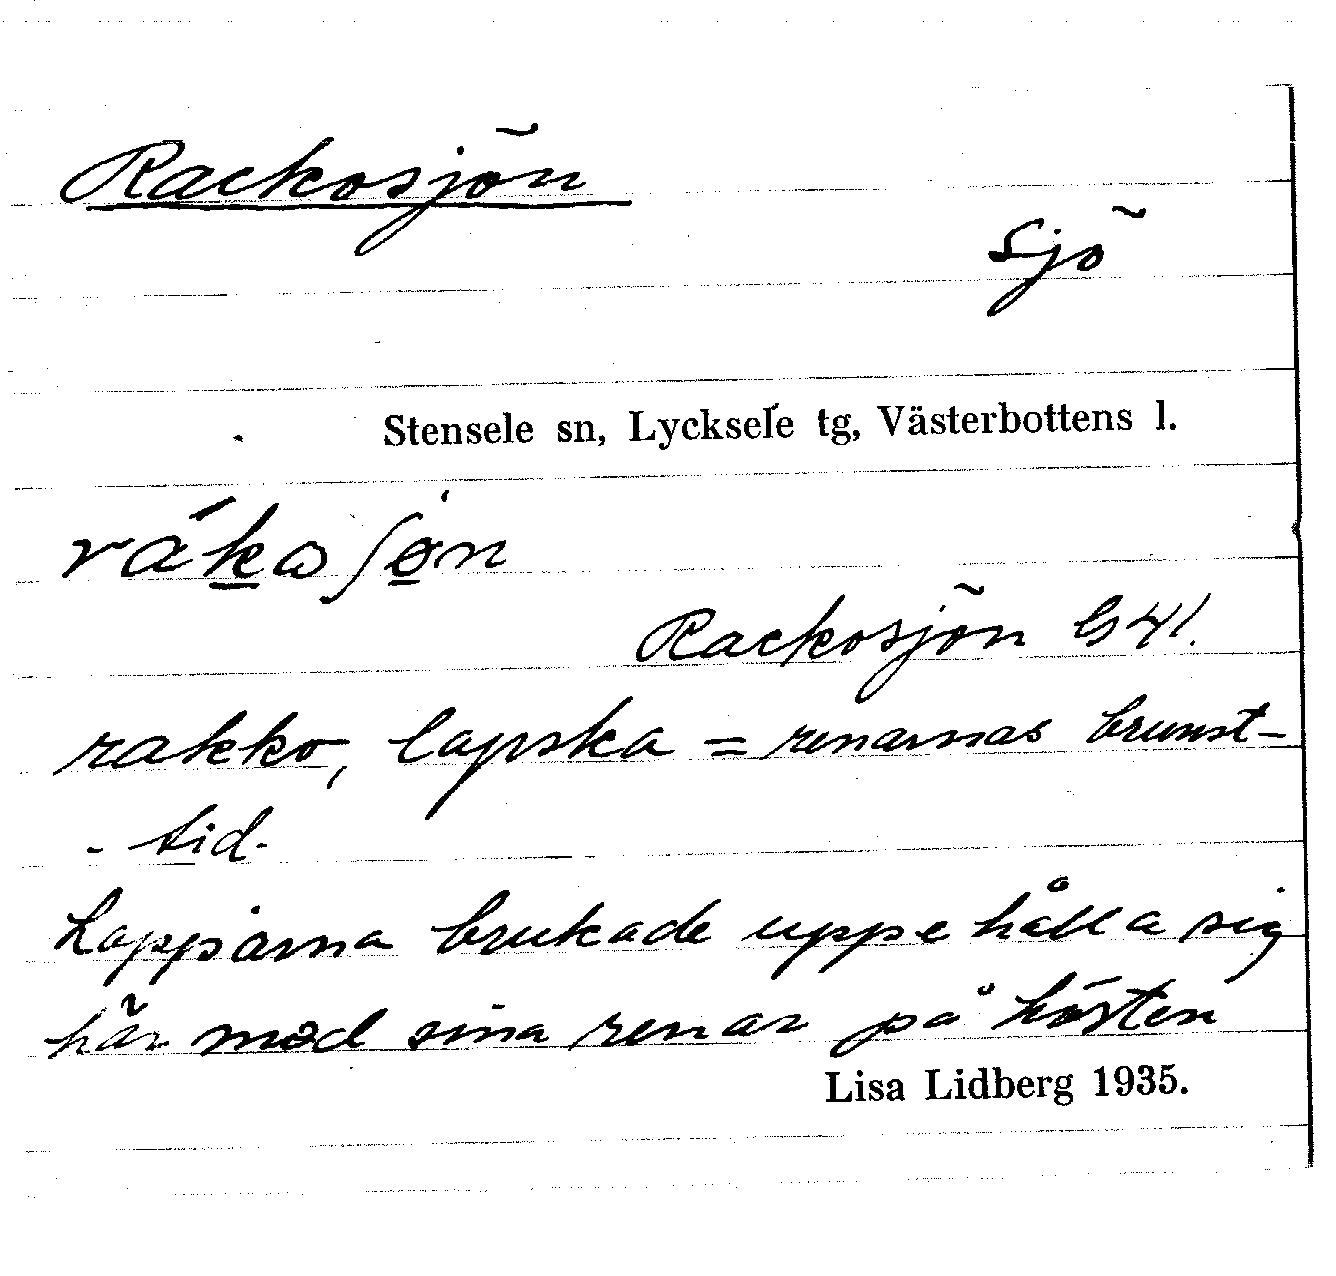 Rackosjön
sjö
Stensele sn, Lycksele tg, Västerbottens l.
rákaʃøn
Rackosjön G 41.
rakko, lapska = renarnas brunst-
- tid.
Lapparna brukade uppehålla sig
här med sina renar på hösten
Lisa Lidberg 1935.